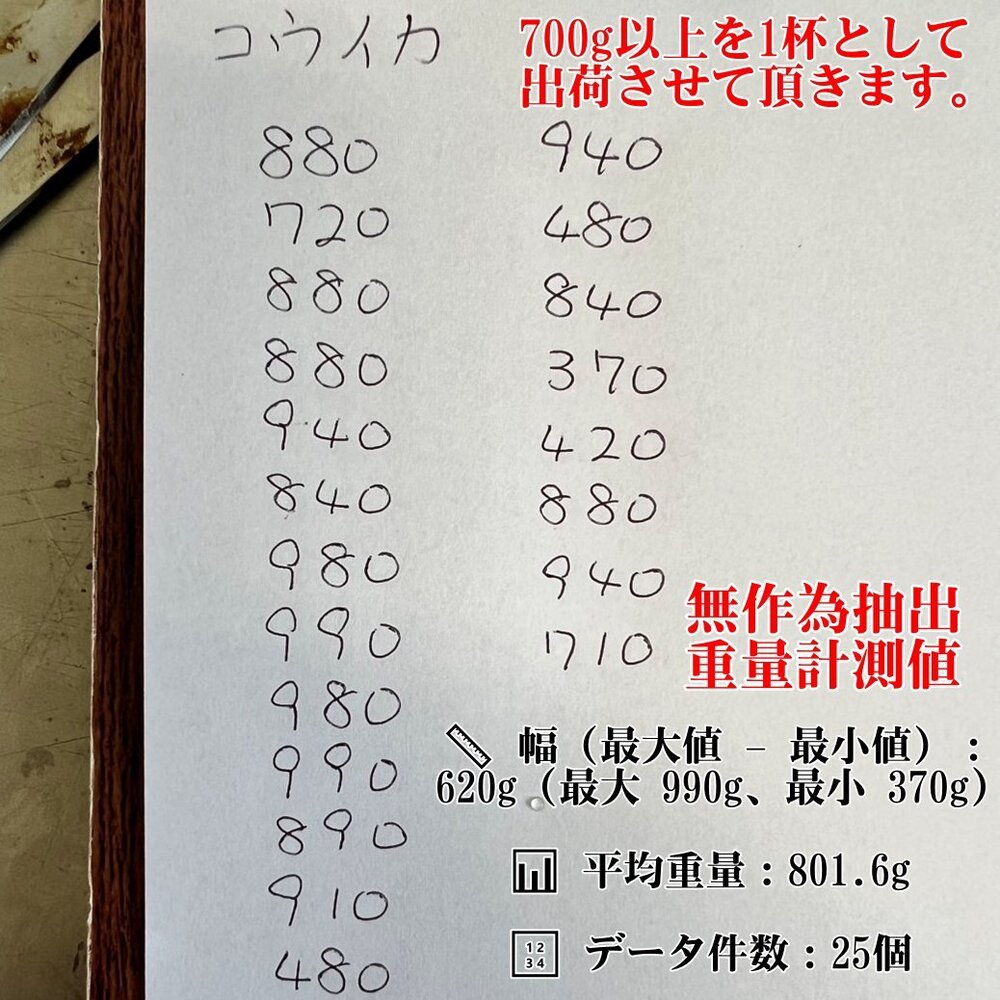 コウイカ
700g以上を1杯として
出荷させて頂きます。
880
720
880
880
940
840
980
990
980
990
890
910
480
940
480
840
370
420
880
940
710
無作為抽出
重量計測値
幅（最大値 − 最小値）：
620g（最大 990g、最小 370g）
平均重量：801.6g
12
34
データ件数：25個